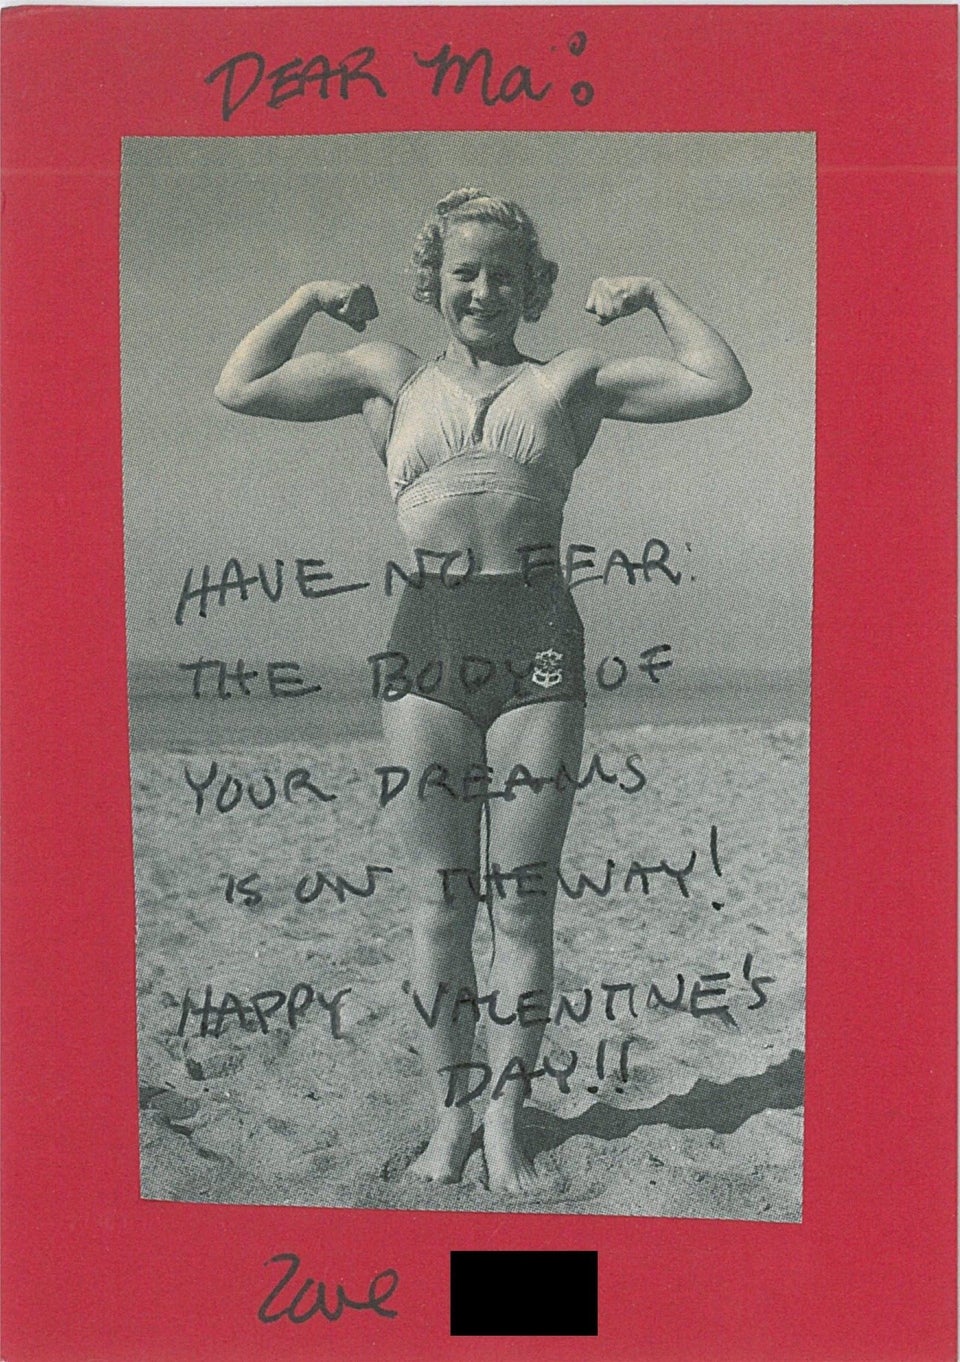 DEAR Ma:
HAVE NO FEAR:
THE BODY OF
YOUR DREAMS
IS ON THE WAY!
HAPPY VALENTINE'S
DAY!!
Love